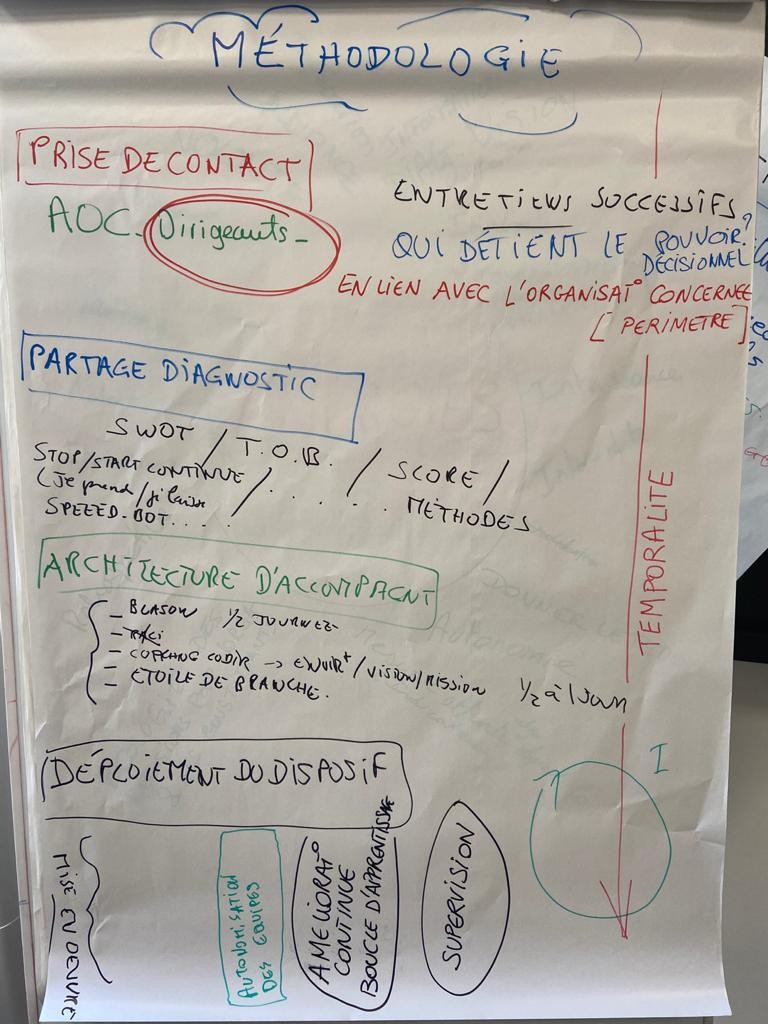 MÉTHODOLOGIE
PRISE DE CONTACT
AOC - Dirigeants -
ENTRETIENS SUCCESSIFS
QUI DÉTIENT LE POUVOIR ?
DÉCISIONNEL
EN LIEN AVEC L'ORGANISAT° CONCERNEE
[PERIMETRE]
PARTAGE DIAGNOSTIC
SWOT / T.O.B. / SCORE /
STOP/START CONTINUE / . . . . . . MÉTHODES
(Je prend / je laisse
SPEEED-BOT . . . .
TEMPORALITE
ARCHITECTURE D'ACCOMPAGNT
- BLASON 1/2 JOURNEE
- RACI
- COACHING CODIR → ENVIR+ / VISION / MISSION 1/2 à 1 Jour
- ETOILE DE BRANCHE.
DÉPLOIEMENT DU DISPOSIF
I
MISE EN OEUVRE
AUTONOMISATION
DES EQUIPES
AMELIORAT°
CONTINUE
BOUCLE D'APPRENTISSAGE
SUPERVISION